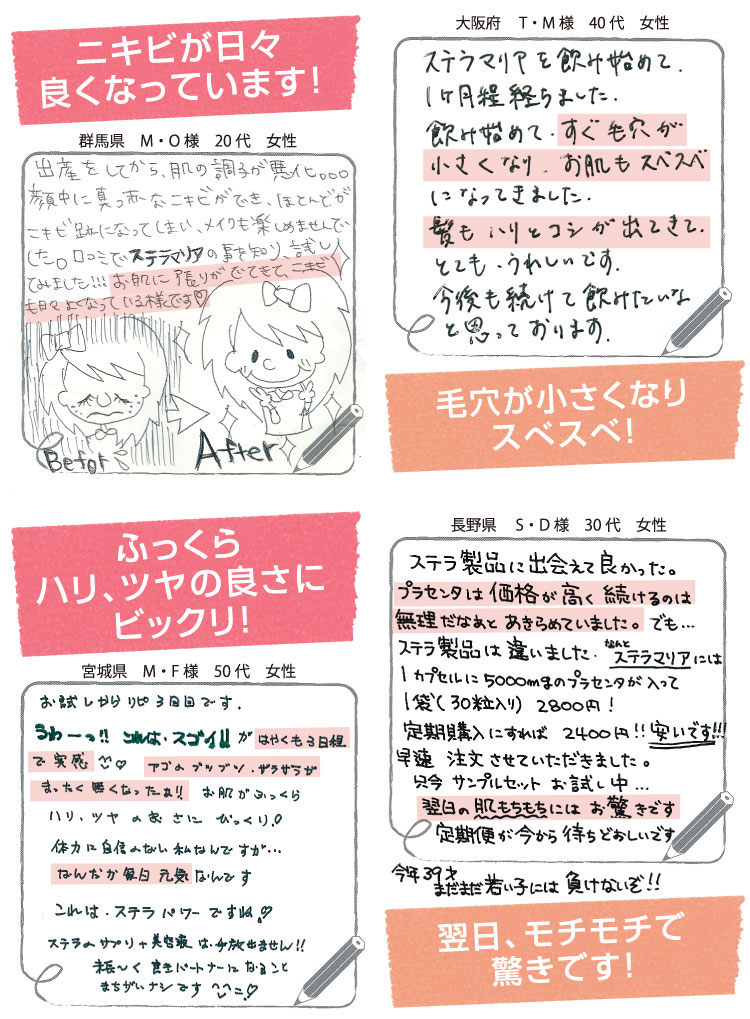 ニキビが日々
良くなっています！
群馬県　M・O様　20代　女性
出産をしてから、肌の調子が悪化。。。
顔中に真っ赤なニキビができ、ほとんどが
ニキビ跡になってしまい、メイクも楽しめませんで
した。口コミでステラマリアの事を知り、試し
てみました!!! お肌に張りがでてきて、ニキビ
も日々よくなっている様です♡
Befor
After
大阪府　T・M様　40代　女性
ステラマリアを飲み始めて、
1ヶ月程経ちました。
飲み始めて、すぐ毛穴が
小さくなり、お肌もスベスベ
になってきました。
髪もハリとコシが出てきて、
とても、うれしいです。
今後も続けて飲みたいな
と思っております。
毛穴が小さくなり
スベスベ！
ふっくら
ハリ、ツヤの良さに
ビックリ！
宮城県　M・F様　50代　女性
お試しからリピ3回目です。
うわーっ!! これは、スゴイ!! が はやくも3日程
で実感 アゴのブツブツ、ザラザラが
まったく無くなったぁ!! お肌がふっくら
ハリ、ツヤの良さに びっくり♡!
体力に自信のない私なんですが…
なんだか毎日元気なんです
これは、ステラパワーですね♡!
ステラのサプリや美容液は、手放せません!!
末長〜く良きパートナーになること
まちがいナシです
長野県　S・D様　30代　女性
ステラ製品に出会えて良かった。
プラセンタは価格が高く続けるのは
無理だなあとあきらめていました。でも…
ステラ製品は違いました。なんとステラマリアには
1カプセルに5000mgのプラセンタが入って
1袋(30粒入り) 2800円！
定期購入にすれば 2400円!! 安いです!!!
早速 注文させていただきました。
只今 サンプルセット お試し中…
翌日の肌もちもちにはお驚きです
定期便が今から待ちどおしいです
今年39才
まだまだ若い子には負けないぞ!!
翌日、モチモチで
驚きです！